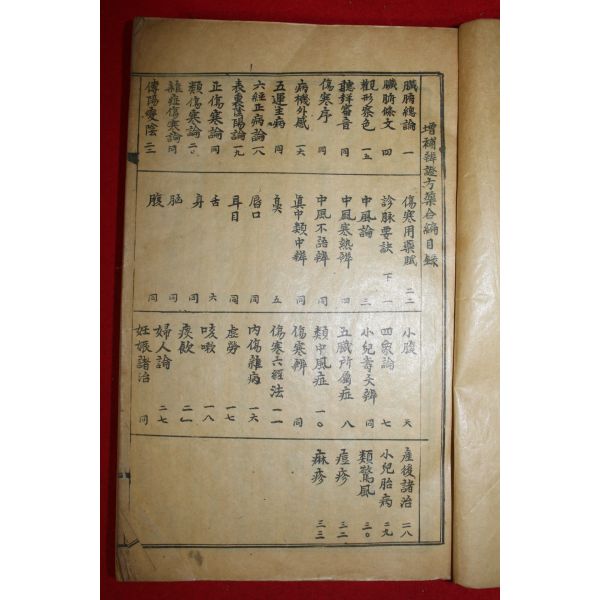 增補辨證方藥合編目錄
臟腑總論 一
臟腑條文 四
觀形察色 一五
聽聲審音 同
傷寒序 同
病機外感 一六
五運主病 同
六經正病論 一八
表裏陰陽論 一九
正傷寒論 同
類傷寒論 二〇
雜症傷寒論 同
傳陽變陰 二二
傷寒用藥賦 二二
診脉要訣 下 一
中風論 三
中風寒熱辨 四
中風不語辨 同
眞中類中辨 同
鼻 五
唇口 同
耳目 同
舌 六
身 同
胸 同
腹 同
小腹 六
四象論 七
小兒壽夭辨 同
五臟所屬症 八
類中風症 一〇
傷寒辨 同
傷寒六經法 一一
內傷雜病 一六
虛勞 一七
咳嗽 一八
痰飲 二一
婦人論 二七
妊娠諸治 同
產後諸治 二八
小兒胎病 二九
類驚風 三〇
痘疹 三二
麻疹 三三